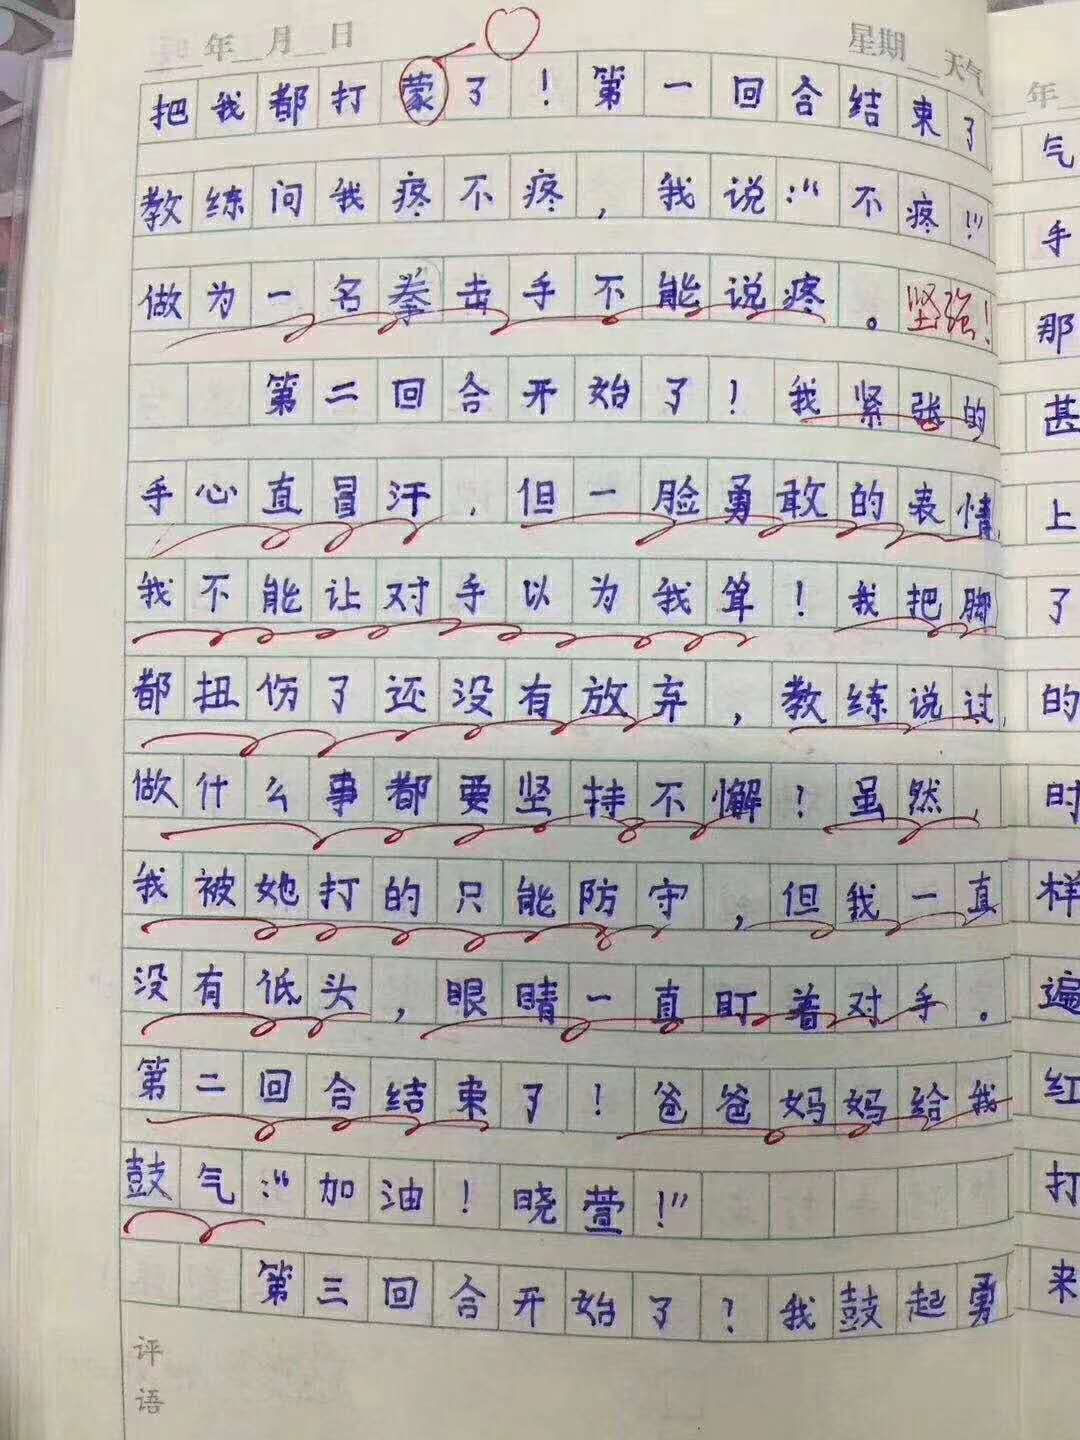 年 月 日 星期 天气
把我都打蒙了！第一回合结束了
教练问我疼不疼，我说：“不疼！”
做为一名拳击手不能说疼。坚强！
第二回合开始了！我紧张的
手心直冒汗，但一脸勇敢的表情，
我不能让对手以为我耸！我把脚
都扭伤了还没有放弃，教练说过，
做什么事都要坚持不懈！虽然，
我被她打的只能防守，但我一直
没有低头，眼睛一直盯着对手。
第二回合结束了！爸爸妈妈给我
鼓气：“加油！晓萱！”
第三回合开始了！我鼓起勇
评语
年
气
手
那
甚
上
了
的
时
样
遍
红
打
来